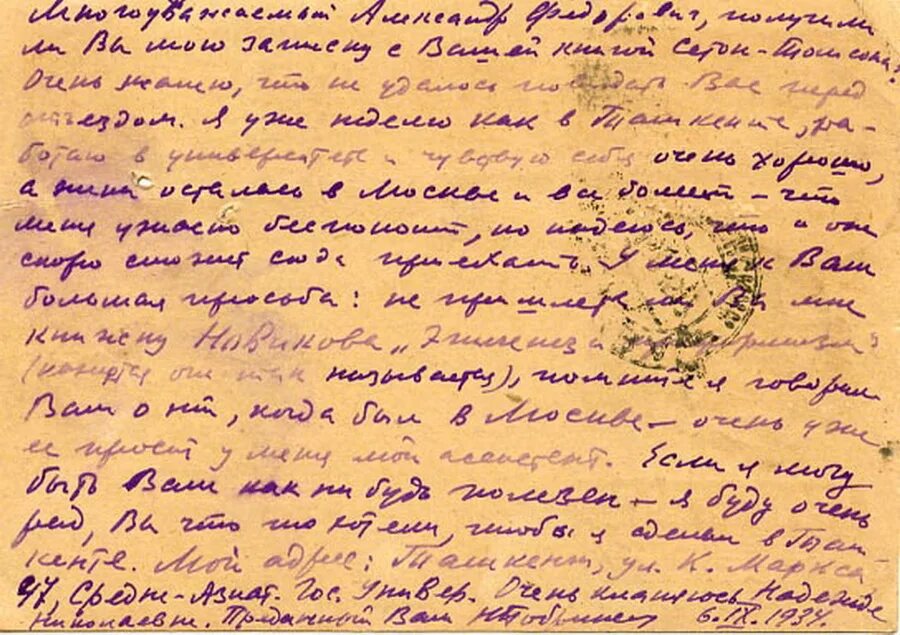 Многоуважаемый Александр Федорович, получили
ли Вы мою записку с Вашей книгой Сетон-Томсона?
Очень жалею, что не удалось повидать Вас перед
отъездом. Я уже неделю как в Ташкенте, ра-
ботаю в университете и чувствую себя очень хорошо,
а осталась в Москве и - что
меня ужасно беспокоит, но надеюсь, что и он
скоро сможет сюда приехать. У меня к Вам
большая просьба: не пришлете ли Вы мне
книжку Новикова „
(кажется она так называется), помните я говорил
Вам о ней, когда был в Москве - очень уже
ее просит у меня мой ассистент. Если я могу
быть Вам чем ни будь полезен - я буду очень
рад, Вы что то хотели, чтобы я сделал в Таш-
кенте. Мой адрес: Ташкент, ул. К. Маркса
47, Средне-Азиат. Гос. Универ. Очень кланяюсь Надежде
Николаевне. Преданный Вам 6.IX.1934.